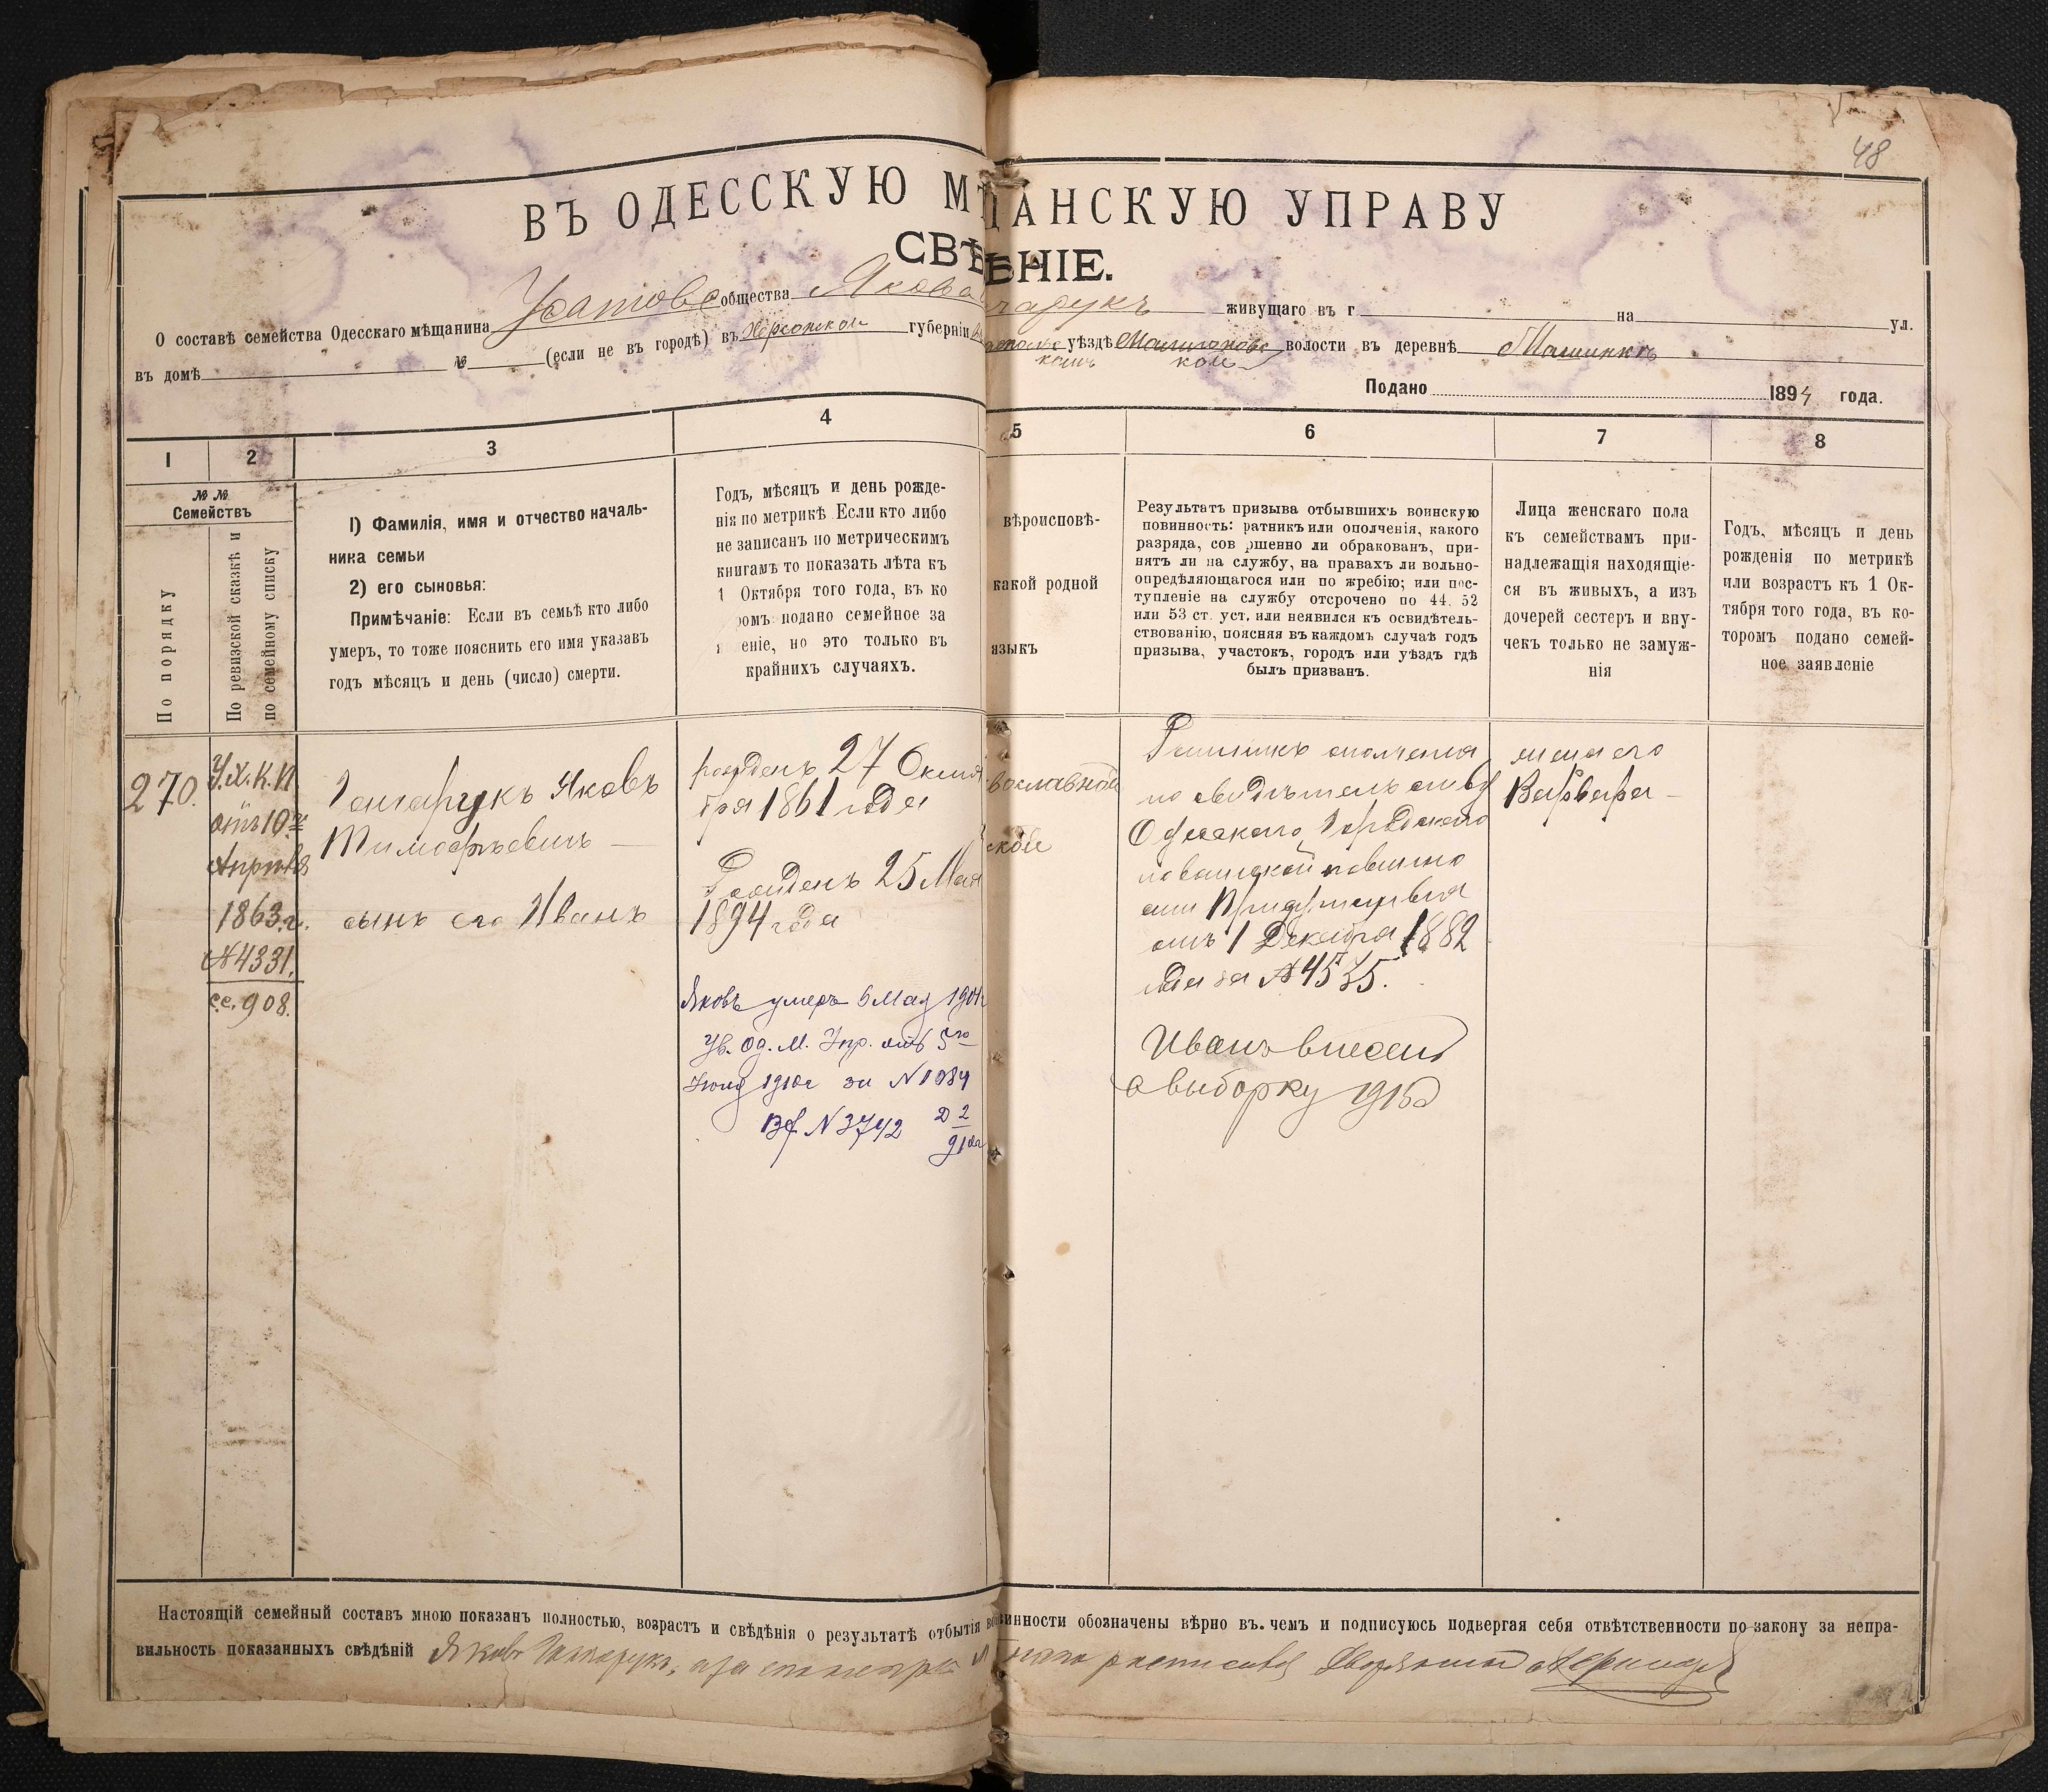 48
ВЪ ОДЕССКУЮ МѢЩАНСКУЮ УПРАВУ
СВѢДѢНІЕ.
О составѣ семейства Одесскаго мѣщанина Усатовс общества Якова чарукъ живущаго въ г на ул.
въ домѣ № (если не въ городѣ) въ Херсонской губерніи уѣздѣ волости въ деревнѣ
комъ кой
Подано 1894 года.
1 2 3 4 5 6 7 8
№ №
Семействъ
По порядку
По ревизской сказкѣ и
по семейному списку
1) Фамилія, имя и отчество началь-
ника семьи
2) его сыновья:
Примѣчаніе: Если въ семьѣ кто либо
умеръ, то тоже пояснить его имя указавъ
годъ мѣсяцъ и день (число) смерти.
Годъ, мѣсяцъ и день рожде-
нія по метрикѣ Если кто либо
не записанъ по метрическимъ
книгамъ то показать лѣта къ
1 Октября того года, въ ко
ромъ подано семейное за
еніе, но это только въ
крайнихъ случаяхъ.
вѣроисповѣ-
какой родной
языкъ
Результатъ призыва отбывшихъ воинскую
повинность: ратникъ или ополченія, какого
разряда, сов ршенно ли обракованъ, при-
нятъ ли на службу, на правахъ ли вольно-
опредѣляющагося или по жребію; или пос-
тупленіе на службу отсрочено по 44. 52
или 53 ст. уст. или неявился къ освидѣтель-
ствованію, поясняя въ каждомъ случаѣ годъ
призыва, участокъ, городъ или уѣздъ гдѣ
былъ призванъ.
Лица женскаго пола
къ семействамъ при-
надлежащія находящіе-
ся въ живыхъ, а изъ
дочерей сестеръ и вну-
чекъ только не замуж-
нія
Годъ, мѣсяцъ и день
рожденія по метрикѣ
или возрастъ къ 1 Ок-
тября того года, въ ко-
торомъ подано семей-
ное заявленіе
270.
У.Х.К.П.
отъ 10го
Апрѣля
1863 г.
№ 4331.
с.с. 908.
Гончарукъ Яковъ
Тимофѣевичъ
сынъ его Иванъ
рожденъ 27 Октя
бря 1861 года
Рожденъ 25 Мая
1894 года
Яковъ умеръ 6 Мая
Ув. Од. М. Упр. отъ 5го
1910г за № 1084
Вх № 3742
вославной
ской
Ратникъ ополченія
по свидѣтельству
Одесскаго Городскаго
по воинской повинно
сти Присутствія
отъ 1 Декабря 1882
года за № 4535.
Иванъ внесенъ
в выборку 1915г
жена его
Варвара
Настоящій семейный составъ мною показанъ полностью, возрастъ и свѣдѣнія о результатѣ отбытія воинности обозначены вѣрно въ. чемъ и подписуюсь подвергая себя отвѣтственности по закону за непра-
вильность показанныхъ свѣдѣній Яковъ Гончарукъ, а за росписался